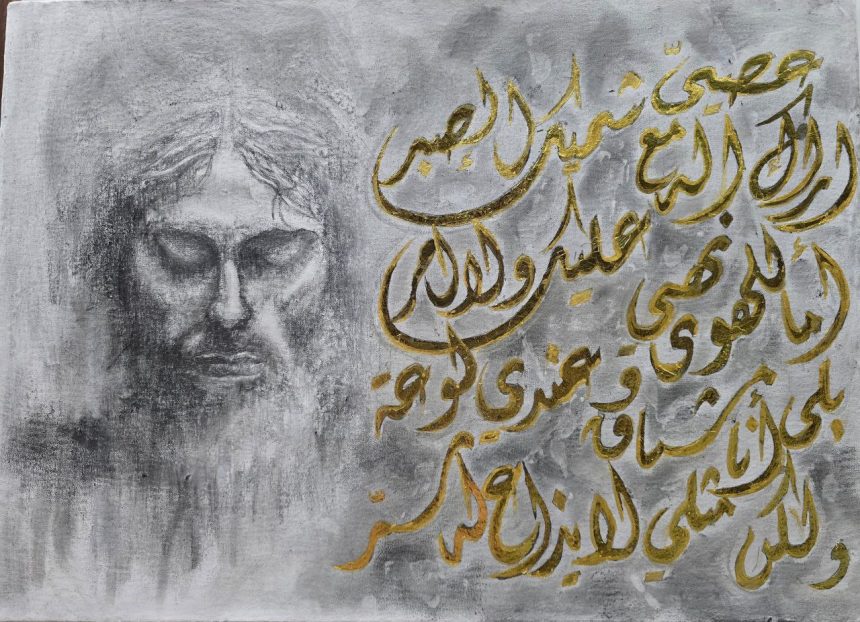 اراك عصيّ الدمع شميتك الصبر
أما للهوى نهي عليك ولا امر
بلى أنا مشتاق و عندي لوعة
ولكن مثلي لا يذاع له سرّ